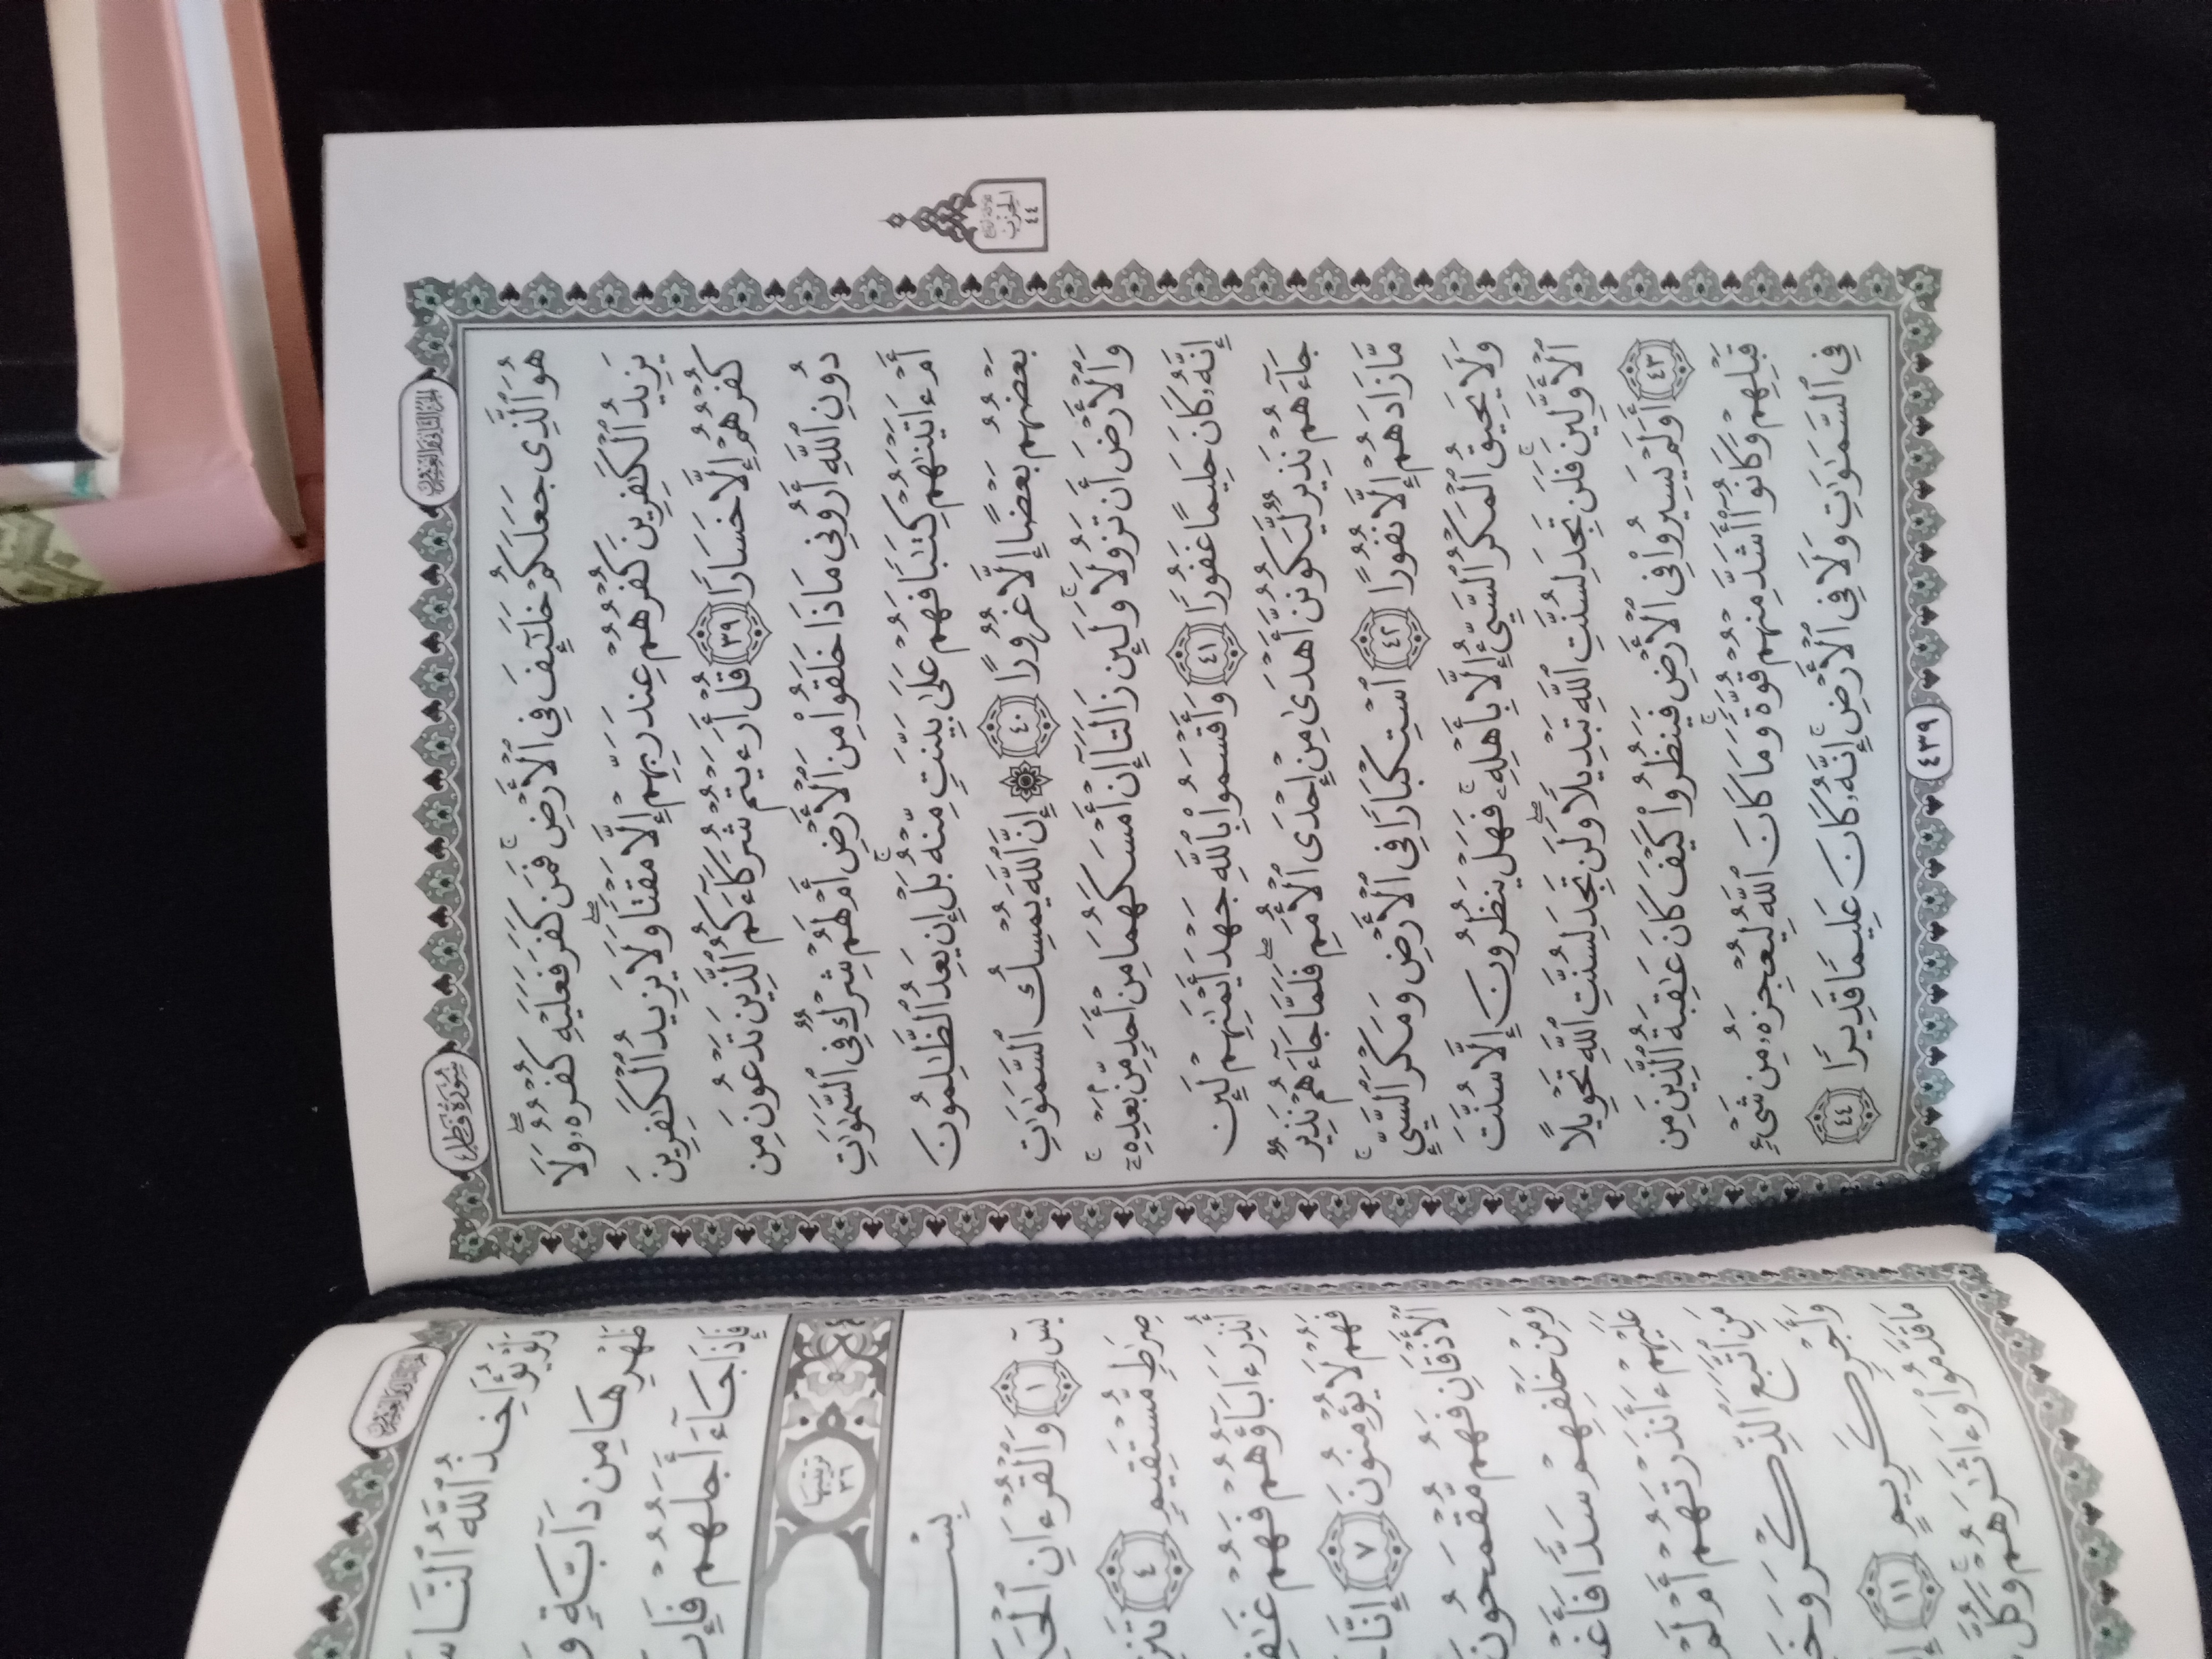 الجزء الثاني والعشرون
سورة فاطر
هُوَ ٱلَّذِى جَعَلَكُمْ خَلَـٰٓئِفَ فِى ٱلْأَرْضِ ۚ فَمَن كَفَرَ فَعَلَيْهِ كُفْرُهُۥ ۖ وَلَا
يَزِيدُ ٱلْكَـٰفِرِينَ كُفْرُهُمْ عِندَ رَبِّهِمْ إِلَّا مَقْتًا ۖ وَلَا يَزِيدُ ٱلْكَـٰفِرِينَ
كُفْرُهُمْ إِلَّا خَسَارًا ٣٩ قُلْ أَرَءَيْتُمْ شُرَكَآءَكُمُ ٱلَّذِينَ تَدْعُونَ مِن
دُونِ ٱللَّهِ أَرُونِى مَاذَا خَلَقُوا۟ مِنَ ٱلْأَرْضِ أَمْ لَهُمْ شِرْكٌ فِى ٱلسَّمَـٰوَٰتِ
أَمْ ءَاتَيْنَـٰهُمْ كِتَـٰبًا فَهُمْ عَلَىٰ بَيِّنَتٍ مِّنْهُ ۚ بَلْ إِن يَعِدُ ٱلظَّـٰلِمُونَ
بَعْضُهُم بَعْضًا إِلَّا غُرُورًا ٤٠ ۞ إِنَّ ٱللَّهَ يُمْسِكُ ٱلسَّمَـٰوَٰتِ
وَٱلْأَرْضَ أَن تَزُولَا ۚ وَلَئِن زَالَتَآ إِنْ أَمْسَكَهُمَا مِنْ أَحَدٍ مِّنۢ بَعْدِهِۦٓ ۚ
إِنَّهُۥ كَانَ حَلِيمًا غَفُورًا ٤١ وَأَقْسَمُوا۟ بِٱللَّهِ جَهْدَ أَيْمَـٰنِهِمْ لَئِن
جَآءَهُمْ نَذِيرٌ لَّيَكُونُنَّ أَهْدَىٰ مِنْ إِحْدَى ٱلْأُمَمِ ۖ فَلَمَّا جَآءَهُمْ نَذِيرٌ
مَّا زَادَهُمْ إِلَّا نُفُورًا ٤٢ ٱسْتِكْبَارًا فِى ٱلْأَرْضِ وَمَكْرَ ٱلسَّيِّئِ ۚ
وَلَا يَحِيقُ ٱلْمَكْرُ ٱلسَّيِّئُ إِلَّا بِأَهْلِهِۦ ۚ فَهَلْ يَنظُرُونَ إِلَّا سُنَّتَ
ٱلْأَوَّلِينَ ۚ فَلَن تَجِدَ لِسُنَّتِ ٱللَّهِ تَبْدِيلًا ۖ وَلَن تَجِدَ لِسُنَّتِ ٱللَّهِ تَحْوِيلًا
٤٣ أَوَلَمْ يَسِيرُوا۟ فِى ٱلْأَرْضِ فَيَنظُرُوا۟ كَيْفَ كَانَ عَـٰقِبَةُ ٱلَّذِينَ مِن
قَبْلِهِمْ وَكَانُوٓا۟ أَشَدَّ مِنْهُمْ قُوَّةً ۚ وَمَا كَانَ ٱللَّهُ لِيُعْجِزَهُۥ مِن شَىْءٍ
فِى ٱلسَّمَـٰوَٰتِ وَلَا فِى ٱلْأَرْضِ ۚ إِنَّهُۥ كَانَ عَلِيمًا قَدِيرًا ٤٤
٤٣٩
ثلاثة أرباع
الحزب
٤٤
وَلَوْ يُؤَاخِذُ ٱللَّهُ ٱلنَّاسَ
ظَهْرِهَا مِن دَآبَّةٍ
فَإِذَا جَآءَ أَجَلُهُمْ
ترتيبها
٣٦
١ وَٱلْقُرْءَانِ
صِرَٰطٍ مُّسْتَقِيمٍ ٤
أُنذِرَ ءَابَآؤُهُمْ فَهُمْ
فَهُمْ لَا يُؤْمِنُونَ ٧ إِنَّا
ٱلْأَذْقَانِ فَهُم مُّقْمَحُونَ
وَمِنْ خَلْفِهِمْ سَدًّا
عَلَيْهِمْ ءَأَنذَرْتَهُمْ أَمْ لَمْ
مَنِ ٱتَّبَعَ ٱلذِّكْرَ
وَأَجْرٍ كَرِيمٍ ١١
مَا قَدَّمُوا۟ وَءَاثَـٰرَهُمْ ۚ وَكُلَّ